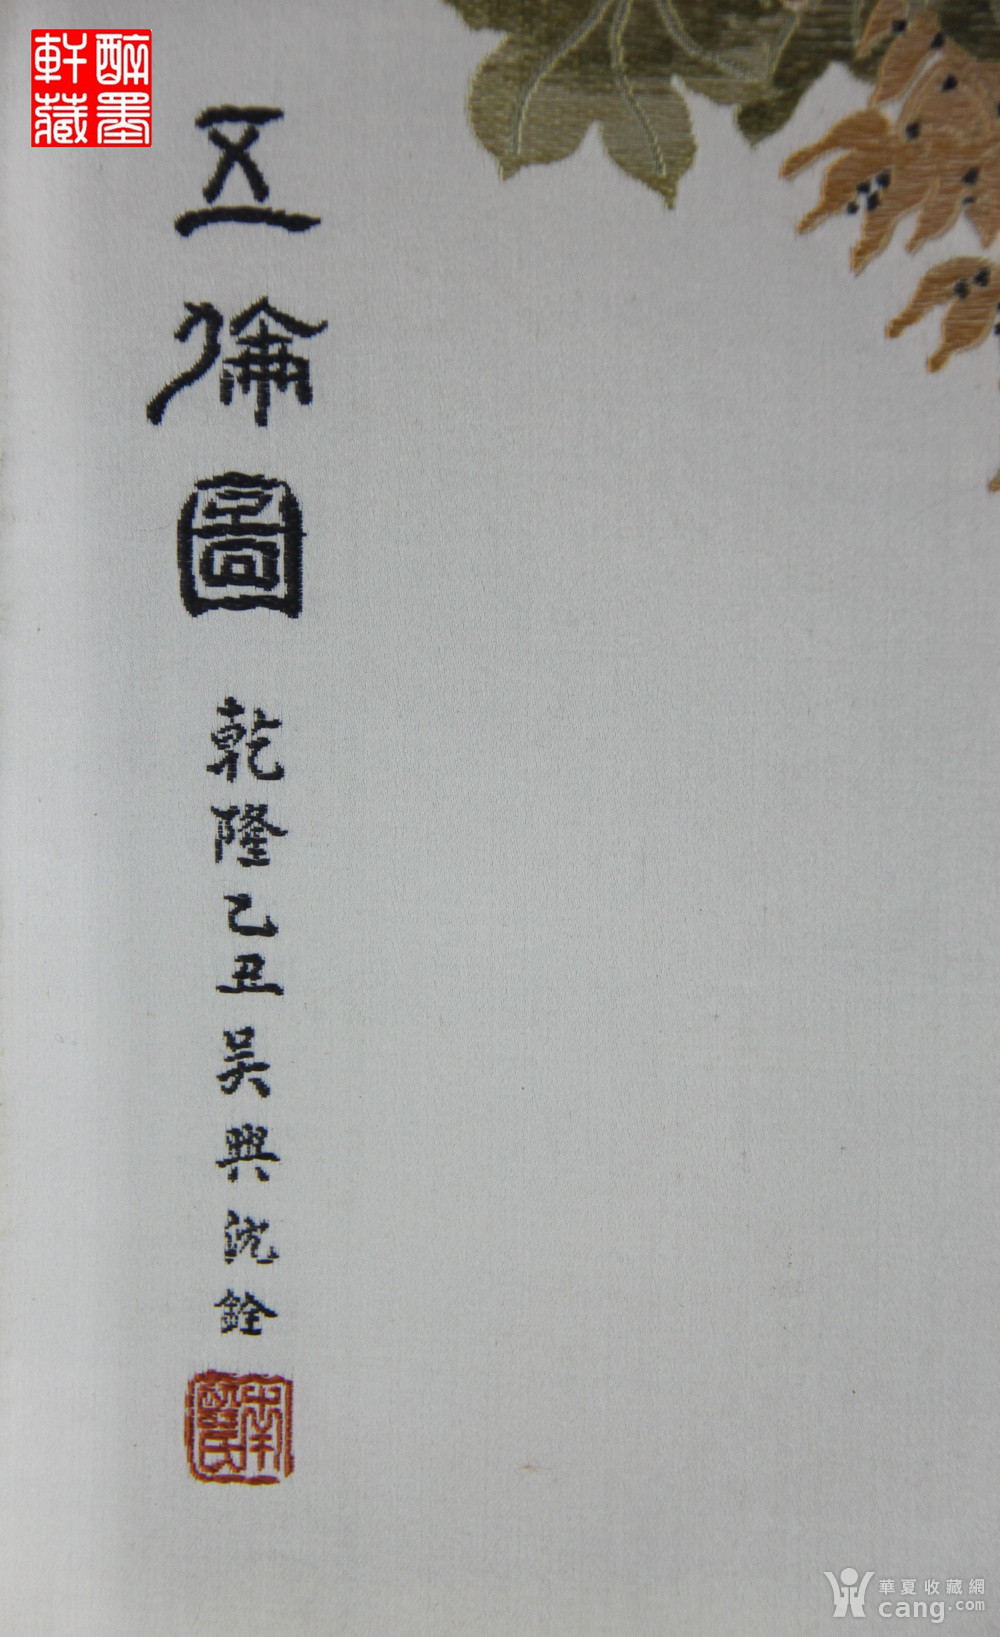 醉墨軒藏
五倫圖
乾隆己丑吴興沈銓
華夏收藏網
cang.com